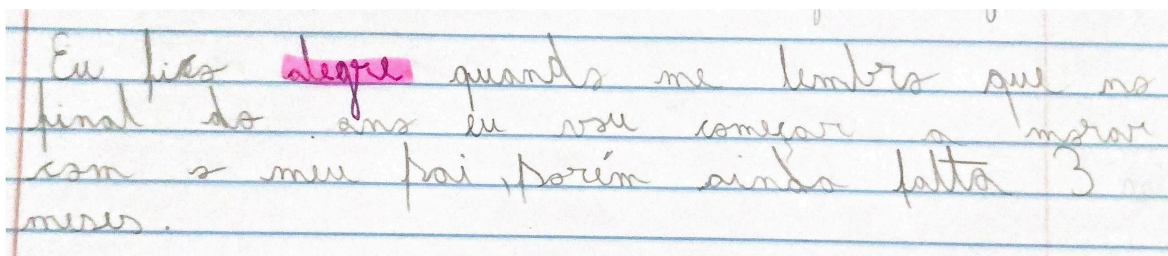 Eu fico alegre quando me lembro que no
final do ano eu vou começar a morar
com o meu pai, porém ainda falta 3
meses.